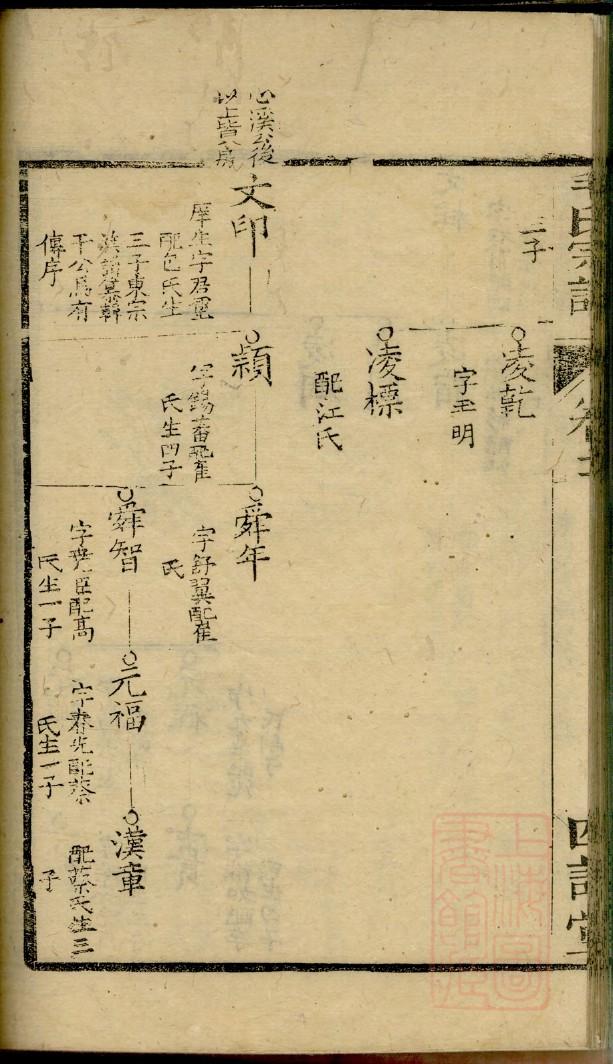 毛氏宗譜
四訓堂
三子
凌乾
字玉明
凌標
配江氏
心溪公後
以上皆八房
文印
庠生字君璽
配包氏生
三子東宗
漢譜業韓
干公爲有
傳序
頴
字錫蕃配崔
氏生四子
舜年
字舒翼配崔
氏
舜智
字堯臣配高
氏生一子
元福
字春先配蔡
氏生一子
漢章
配蔡氏生三
子
上海圖書館藏